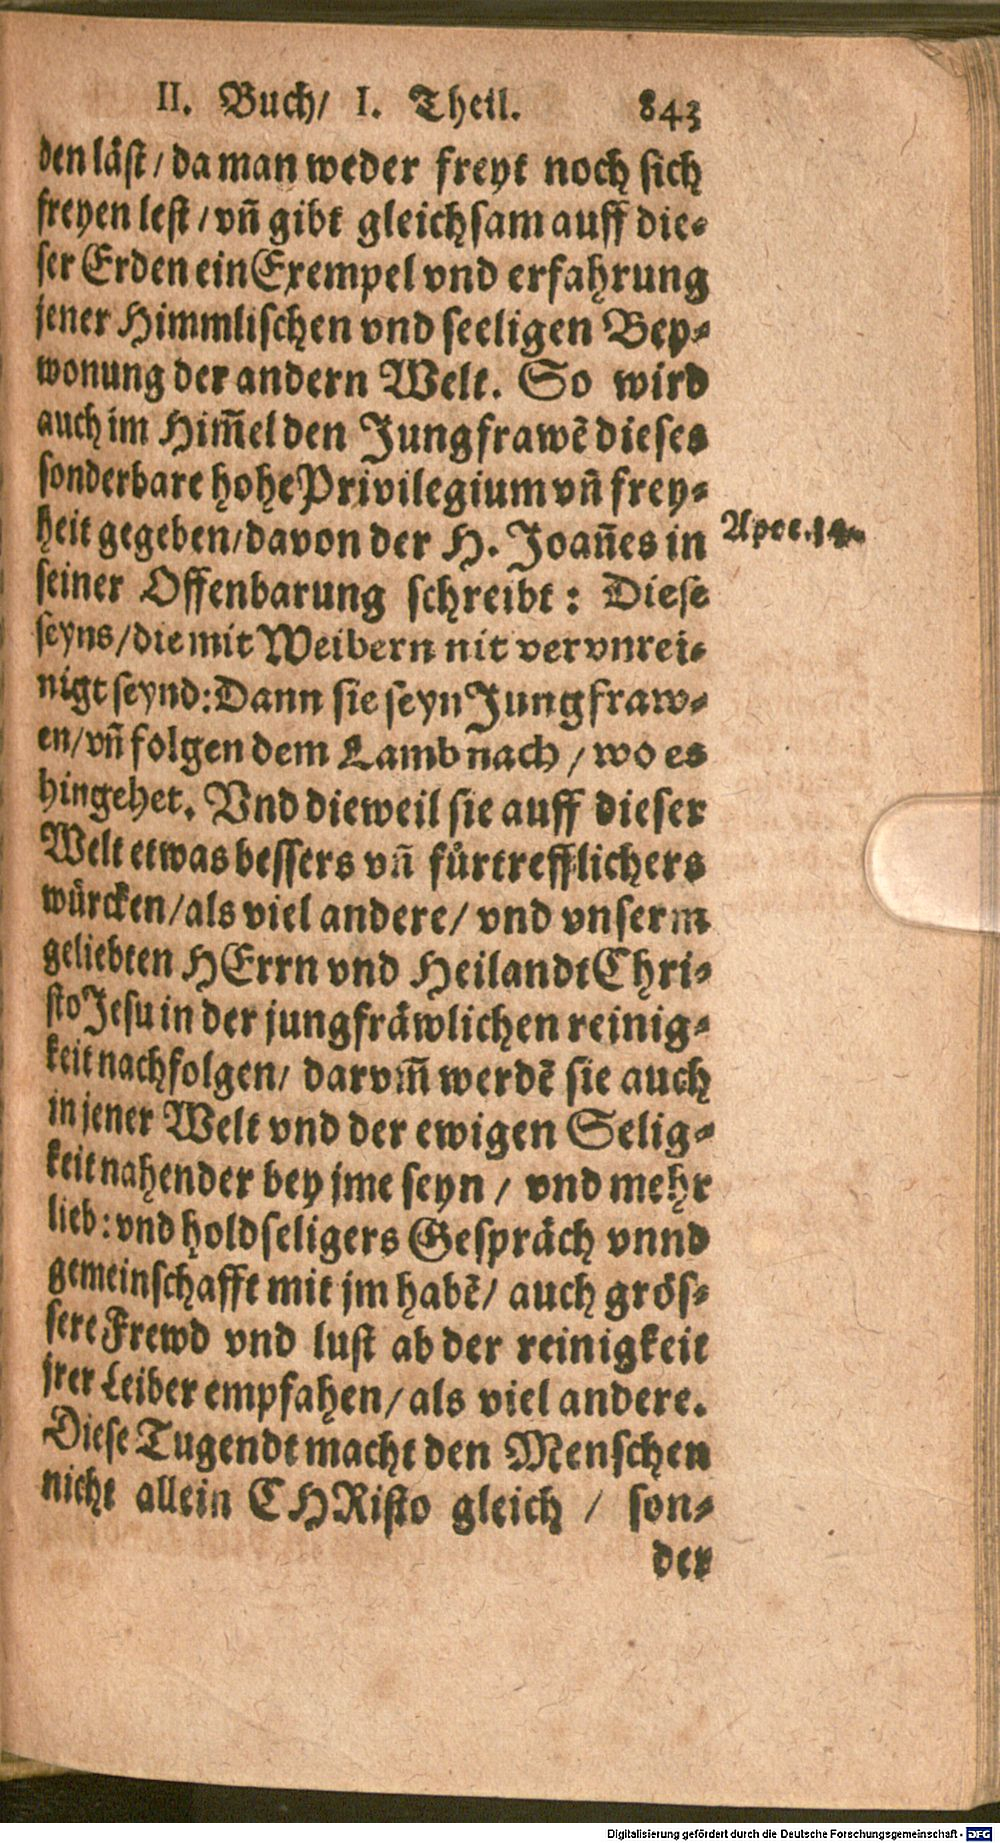 II. Buch/ I. Theil. 843
den läst/ da man weder freyt noch sich
freyen lest/ vñ gibt gleichsam auff die-
ser Erden ein Exempel vnd erfahrung
jener Himmlischen vnd seeligen Bey-
wonung der andern Welt. So wird
auch im Him̃el den Jungfrawẽ dieses
sonderbare hohe Privilegium vñ frey-
heit gegeben/ davon der H. Joañes in
Apoc. 14.
seiner Offenbarung schreibt: Diese
seyns/ die mit Weibern nit vervnrei-
nigt seynd: Dann sie seyn Jungfraw-
en/ vñ folgen dem Lamb nach/ wo es
hingehet. Vnd dieweil sie auff dieser
Welt etwas bessers vñ fuͤrtrefflichers
wuͤrcken/ als viel andere/ vnd vnserm
geliebten HErrn vnd Heilandt Chri-
sto Jesu in der jungfräwlichen reinig-
keit nachfolgen/ darvm̃ werdẽ sie auch
in jener Welt vnd der ewigen Selig-
keit nahender bey jme seyn/ vnd mehr
lieb: vnd holdseligers Gespräch vnnd
gemeinschafft mit jm habẽ/ auch grös-
sere Frewd vnd lust ab der reinigkeit
jrer Leiber empfahen/ als viel andere.
Diese Tugendt macht den Menschen
nicht allein CHRisto gleich/ son-
der
Digitalisierung gefördert durch die Deutsche Forschungsgemeinschaft - DFG